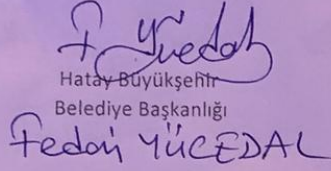 F Yücedal
Hatay Büyükşehir
Belediye Başkanlığı
Fedai YÜCEDAL